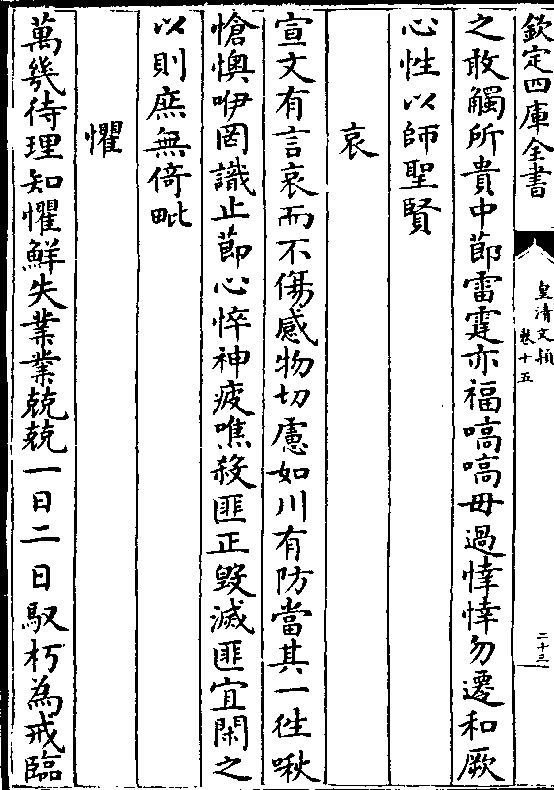 欽定四庫全書
皇清文頴
卷十五
二十三
之敢觸所貴中節雷霆亦福嗃嗃毋過悻悻勿遷和厥
心性以師聖賢
哀
宣文有言哀而不傷感物切慮如川有防當其一往啾
愴懊咿罔識止節心悴神疲噍殺匪正毀滅匪宜閑之
以則庶無倚毗
懼
萬幾待理知懼鮮失業業兢兢一日二日馭朽為戒臨